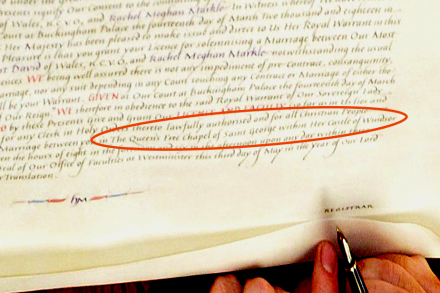 under the given
your Consent to the Contra
of Wales, K.C.V.O., and Rachel Meghan Markle. In Witness whereof
Court at Buckingham Palace the fourteenth day of March Two thousand and eighteen in
Her Majesty has been pleased to make issue and direct to Us Her Royal Warrant in this
Pleasure is that you grant your Licence for solemnising a Marriage between Our Most
David of Wales, K.C.V.O., and Rachel Meghan Markle notwithstanding the usual
WE being well assured there is not any impediment of pre-contract, consanguinity,
marriage, nor any suit depending in any Court touching any Contract or Marriage of either the
be your Warrant. GIVEN at Our Court at Buckingham Palace the fourteenth day of March
Of Our Reign. WE in obedience to the said Royal Warrant of Our Sovereign Lady
by these Presents Give and Grant Our as in Us lies and
any Clerk in Holy Orders thereto lawfully authorised and for all Christian People
Marriage between you in The Queen's Free Chapel of Saint George within Her Castle of Windsor
the hours of eight in the in the afternoon upon any day within three
Seal of Our Office of Faculties at Westminster this third day of May in the Year of Our Lord
Translation.
REGISTRAR